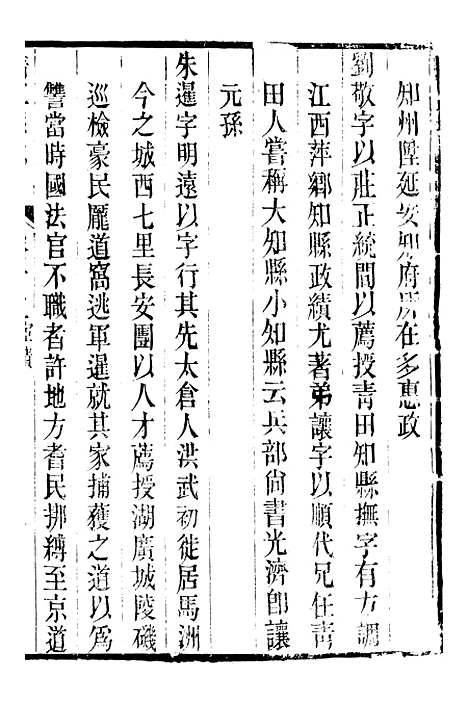 知州陞延安知府所在多惠政
劉敬字以莊正統間以薦授青田知縣撫字有方調
江西萍鄉知縣政績尤著弟讓字以順代兄任青
田人嘗稱大知縣小知縣云兵部尚書光濟卽讓
元孫
朱暹字明遠以字行其先太倉人洪武初徙居馬洲
今之城西七里長安團以人才薦授湖廣城陵磯
巡檢豪民龎道窩逃軍暹就其家捕獲之道以爲
讐當時國法官不職者許地方耆民挷縛至京道